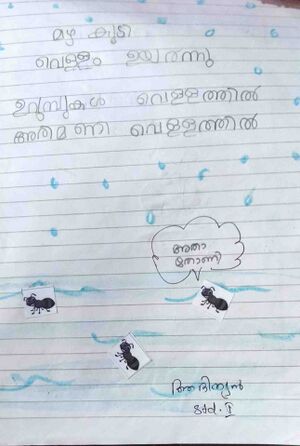 മഴ കൂടി
വെള്ളം ഉയർന്നു
ഉറുമ്പുകൾ വെള്ളത്തിൽ
അരിമണി വെള്ളത്തിൽ
അതാ
തോണി
ആദിനൂൽ
std. I